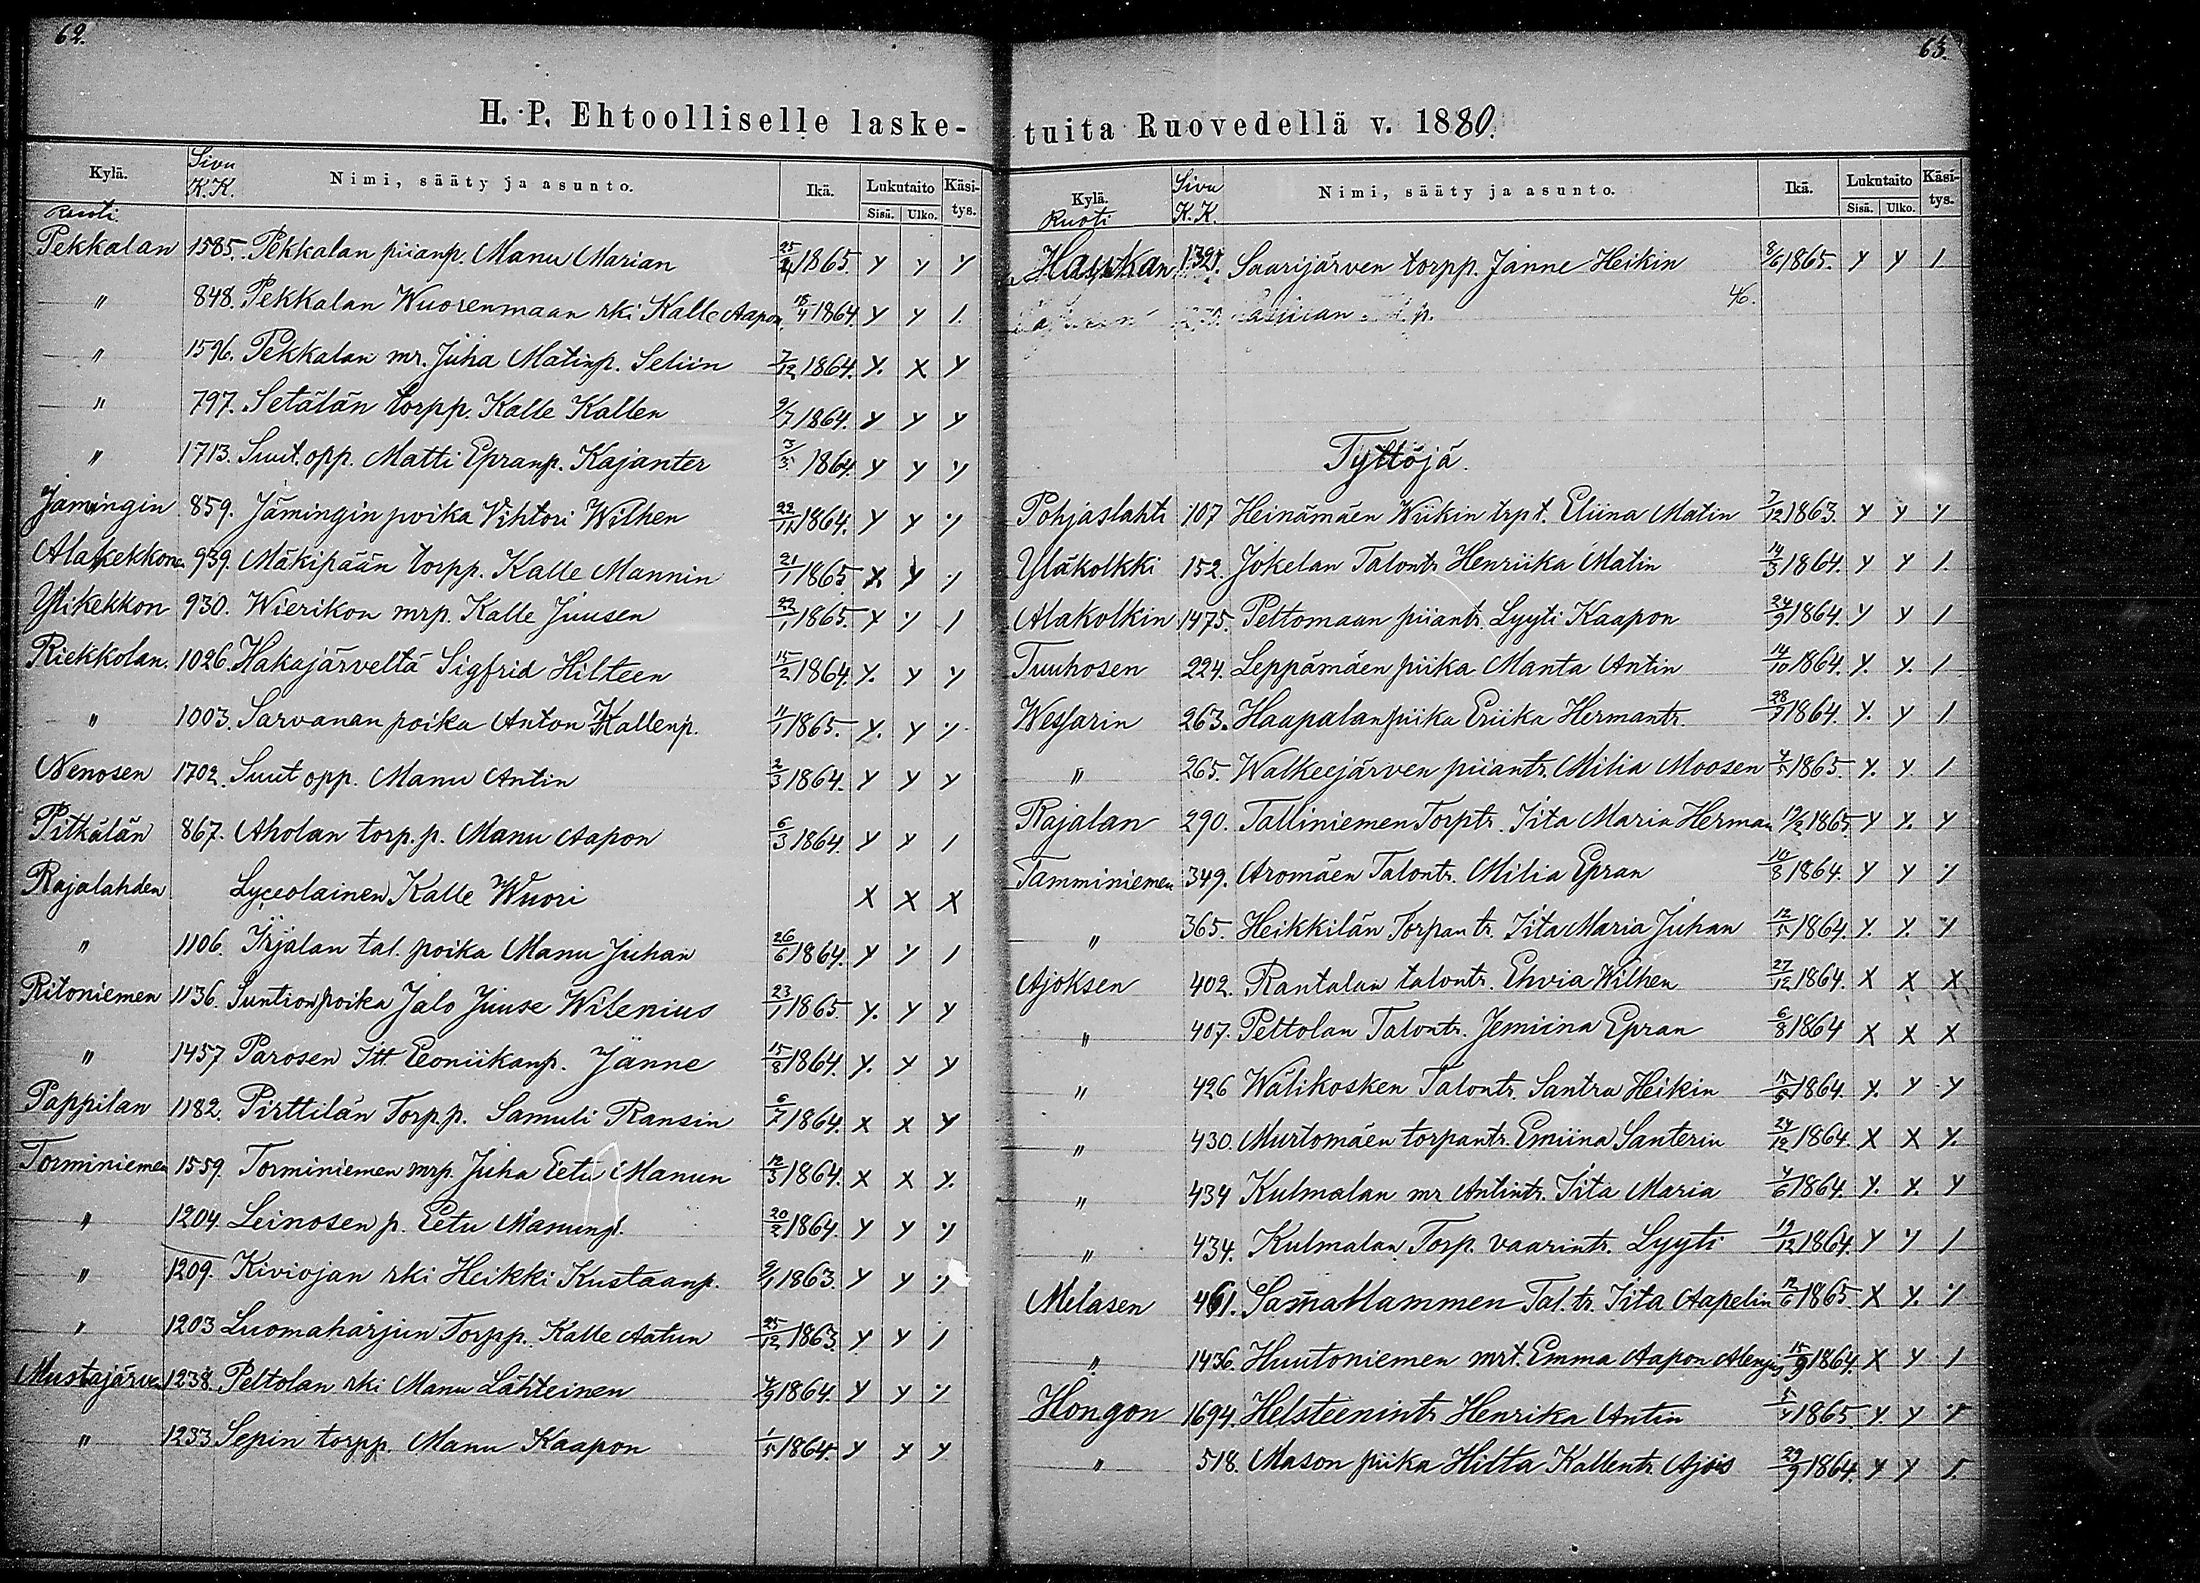 62.
H. P. Ehtoolliselle laske-
Kylä. Sivu K.K. Nimi, sääty ja asunto. Ikä. Lukutaito Käsi-tys.
Sisä. Ulko.
Ruoti
Pekkalan 1585. Pekkalan piianp. Manu Marian 25/4 1865. y y y
" 848. Pekkalan Wuorenmaan rki Kalle Aapon 18/4 1864 y y 1.
" 1596. Pekkalan mr. Juha Matinp. Seliin 7/12 1864. y. x y
" 797. Setälän torpp. Kalle Kallen 9/7 1864. y y y
" 1713. Suut. opp. Matti Epranp. Kajanter 3/3 1864. y y y
Jämingin 859. Jämingin poika Vihtori Wilhen 22/12 1864. y y y
Alakekkonen 939. Mäkipään torpp. Kalle Mannin 21/1 1865 x. y y
Ylikekkon 930. Wierikon mrp. Kalle Juusen 22/1 1865. y y 1
Riekkolan. 1026. Hakajärveltä Sigfrid Hilteen 15/2 1864. y. y y
" 1003. Sarvanan poika Anton Kallenp. 11/1 1865. y. y y
Nenosen 1702. Suut opp. Manu Antin 2/3 1864. y y y
Pitkälän 867. Aholan torp. p. Manu Aapon 6/3 1864. y y 1
Rajalahden Lyceolainen Kalle Wuori x x x
" 1106. Yrjälan tal. poika Manu Juhan 26/6 1864. y y 1
Ritoniemen 1136. Suntion poika Jalo Juuse Wilenius 23/1 1865. y. y y
" 1457 Parosen Itt Eeoniikanp. Jänne 15/8 1864. y. y y
Pappilan 1182. Pirttilän Torp. p. Samuli Ransin 6/7 1864. x x y
Torminiemen 1559. Torminiemen mrp. Juha Eetu Manun 12/3 1864. x x y.
" 1204. Leinosen p. Eetu Manunp. 20/2 1864. y y y
" 1209. Kiviojan rki Heikki Kustaanp. 9/1 1863. y y y
" 1203 Luomaharjun Torpp. Kalle Aatun 25/12 1863. y y 1
Mustajärven 1238. Peltolan rki Manu Lähteinen 4/9 1864. y y y
" 1233 Sepin torpp. Manu Kaapon 1/5 1864. y y y
63.
tuita Ruovedellä v. 1880.
Kylä. Sivu K.K. Nimi, sääty ja asunto. Ikä. Lukutaito Käsi-tys.
Sisä. Ulko.
Ruoti
Hauskan 1321. Saarijärven torpp. Janne Heikin 8/6 1865. y y 1
46.
Tyttöjä.
Pohjaslahti 107 Heinämäen Wiikin trpt. Eliina Matin 7/12 1863. y y y
Yläkolkki 152. Jokelan Talontr Henriika Matin 14/3 1864. y y 1.
Alakolkin 1475. Peltomaan piiantr. Lyyti Kaapon 24/9 1864. y y 1
Tuuhosen 224. Leppämäen piika Manta Antin 14/10 1864. y. y. 1
Wessarin 263. Haapalan piika Eriika Hermantr. 28/7 1864. y. y 1
" 265. Walkeejärven piiantr. Milia Moosen 4/5 1865. y. y 1
Rajalan 290. Talliniemen Torptr. Iita Maria Herman 19/2 1865 y y. y
Tamminiemen 349. Aromäen Talontr. Milia Epran 10/8 1864. y y y
" 365. Heikkilän Torpan tr. Iita Maria Juhan 12/5 1864. y. y. y
Ajoksen 402. Rantalan talontr. Ehvia Wilhen 27/12 1864. x x x
" 407. Peltolan Talontr. Jemiina Epran 6/8 1864 x x x
" 426 Wälikosken Talontr. Santra Heikin 15/5 1864. y. y y
" 430. Murtomäen torpantr. Emiina Santerin 24/12 1864. x x y.
" 434 Kulmalan mr Antintr. Iita Maria 4/6 1864. y. y. y
" 434. Kulmalan Torp. vaarintr. Lyyti 19/12 1864. y y 1
Melasen 461. Sammallammen Tal. tr. Iita Aapelin 12/6 1865. x y. y
" 1436. Huutoniemen mrt. Emma Aapon 15/9 1864. x y 1
Hongon 1694. Helsteenintr Henrika Antin 5/1 1865. y. y y
" 518. Mason piika Hilta Kallentr. Ajois 29/9 1864. y y 1.